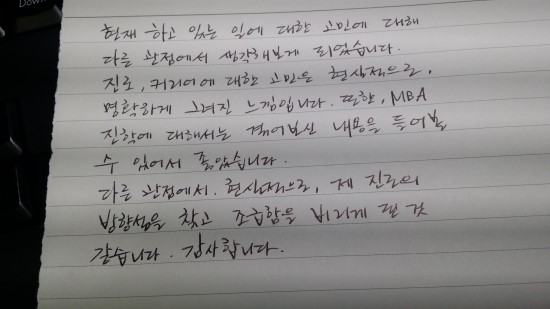 현재 하고 있는 일에 대한 고민에 대해
다른 관점에서 생각해보게 되었습니다.
진로, 커리어에 대한 고민은 현실적으로,
명확하게 그려진 느낌입니다. 또한, MBA
진학에 대해서는 겪어보신 내용을 들어볼
수 있어서 좋았습니다.
다른 관점에서. 현실적으로, 제 진로의
방향성을 찾고 조급함을 버리게 된 것
같습니다. 감사합니다.